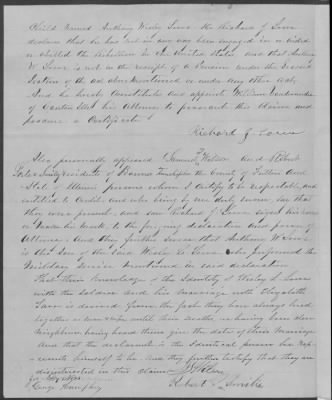 Child Named Anthony Wesley Lowe. he Richard G Lowe
declares that he has not in any way been engaged in or aided
or abetted the Rebellion in the United States. And that Anthony
W Lowe is not in the receipt of a Pension under the Second
Section of the act above mentioned or under any other act,
And he hereby Constitute and appoint William
of Canton Ills his Attorney to prosecute this Claim and
procure a Certificate
Richard G. Lowe
Also personally appeared Samuel Wilson And Robert
residents of Township the County of Fulton And
State of Illinois persons whom I Certify to be respectable, and
entitled to Credit, and who being by me duly sworn, say that
they were present, and saw Richard G Lowe sign his name
or make his mark, to the foregoing declaration And power of
Attorney. And they further swear that Anthony W Lowe
is the Son of the said Wesley Lowe who performed the
Military Service mentioned in said declaration
that their knowledge of the Identity of Wesley Lowe
with the soldier and his marriage with Elizabeth
Lowe is derived from the fact they have always lived
together as man & wife until their deaths, us having been their
Neighbours having heard them give the date of their Marriage
And that the declarant is the Identical person he rep
resents himself to be And they further testify that they are
disinterested in this claim
Robert
George Humphrey